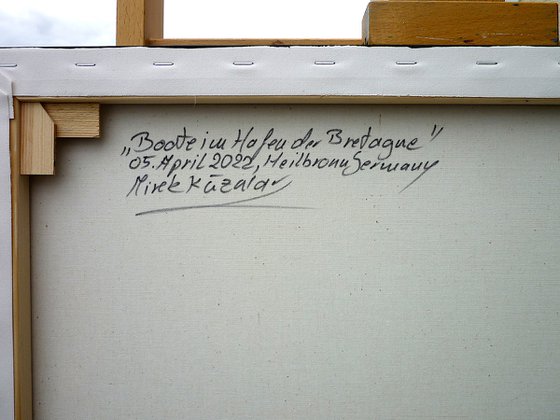 „Boote im Hafen der Bretagne"
05. April 2022, Heilbronn Germany
Mirek Kūzniar